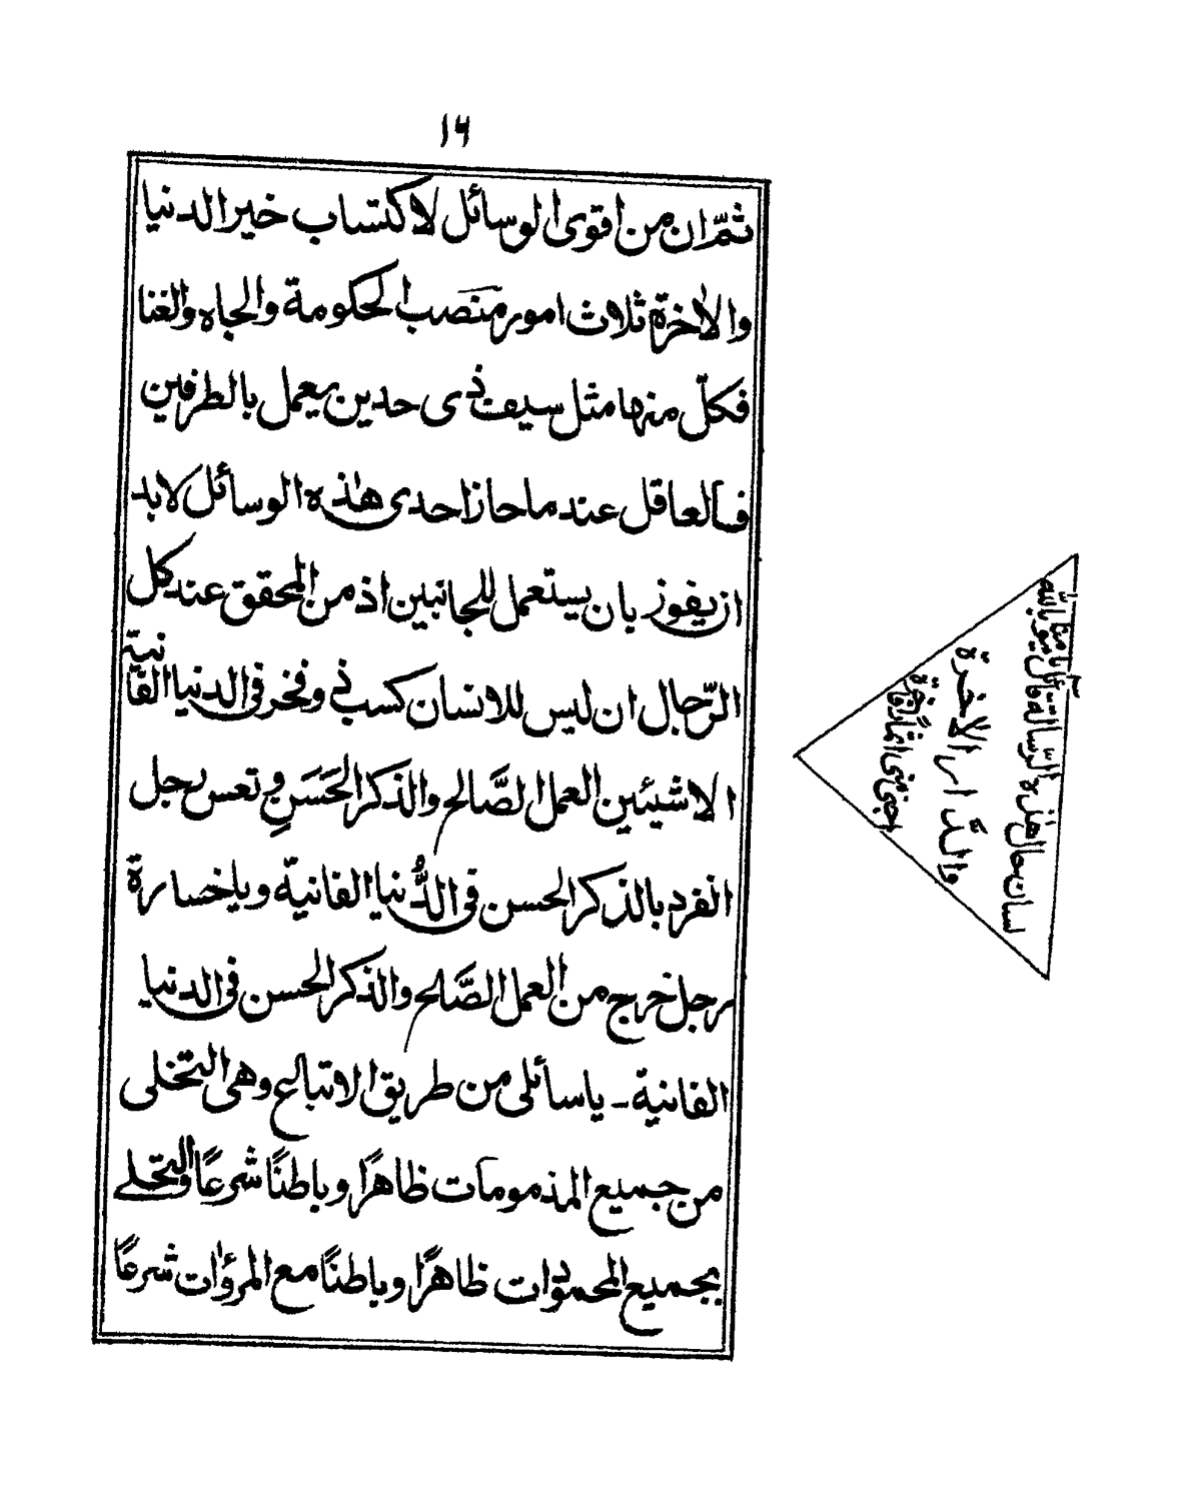 ١٦
ثمّ ان من اقوى الوسائل لاكتساب خير الدنيا
والاٰخرة ثلاث امور منصب الحكومة والجاه والغنا
فكلّ منها مثل سيف ذى حدين يعمل بالطرفين
فالعاقل عند ما حاز احدى هٰذه الوسائل لابد
ان يفوز بان يستعمل للجانبين اذ من المحقق عند كل
الرّجال ان ليس للانسان كسب فى وفخر فى الدنيا الفانيّة
الا شيئين العمل الصَّالح والذكر الحَسَنِ وتعس رجل
انفرد بالذكر الحسن فى الدُّنيا الفانيّة ويا خسارة
رجل خرج من العمل الصَّالح والذكر الحسن فى الدنيا
الفانية ـ يا سائلى من طريق الاتباع وهى التخلى
من جميع المذمومات ظاهرًا وباطنًا شرعًا والتحلے
بجميع المحمودات ظاهرًا وباطنًا مع المرؤات شرعًا
لسان حال هٰذه الرّسالة قال يقول آمنّا بالله
والدّار الاخرة